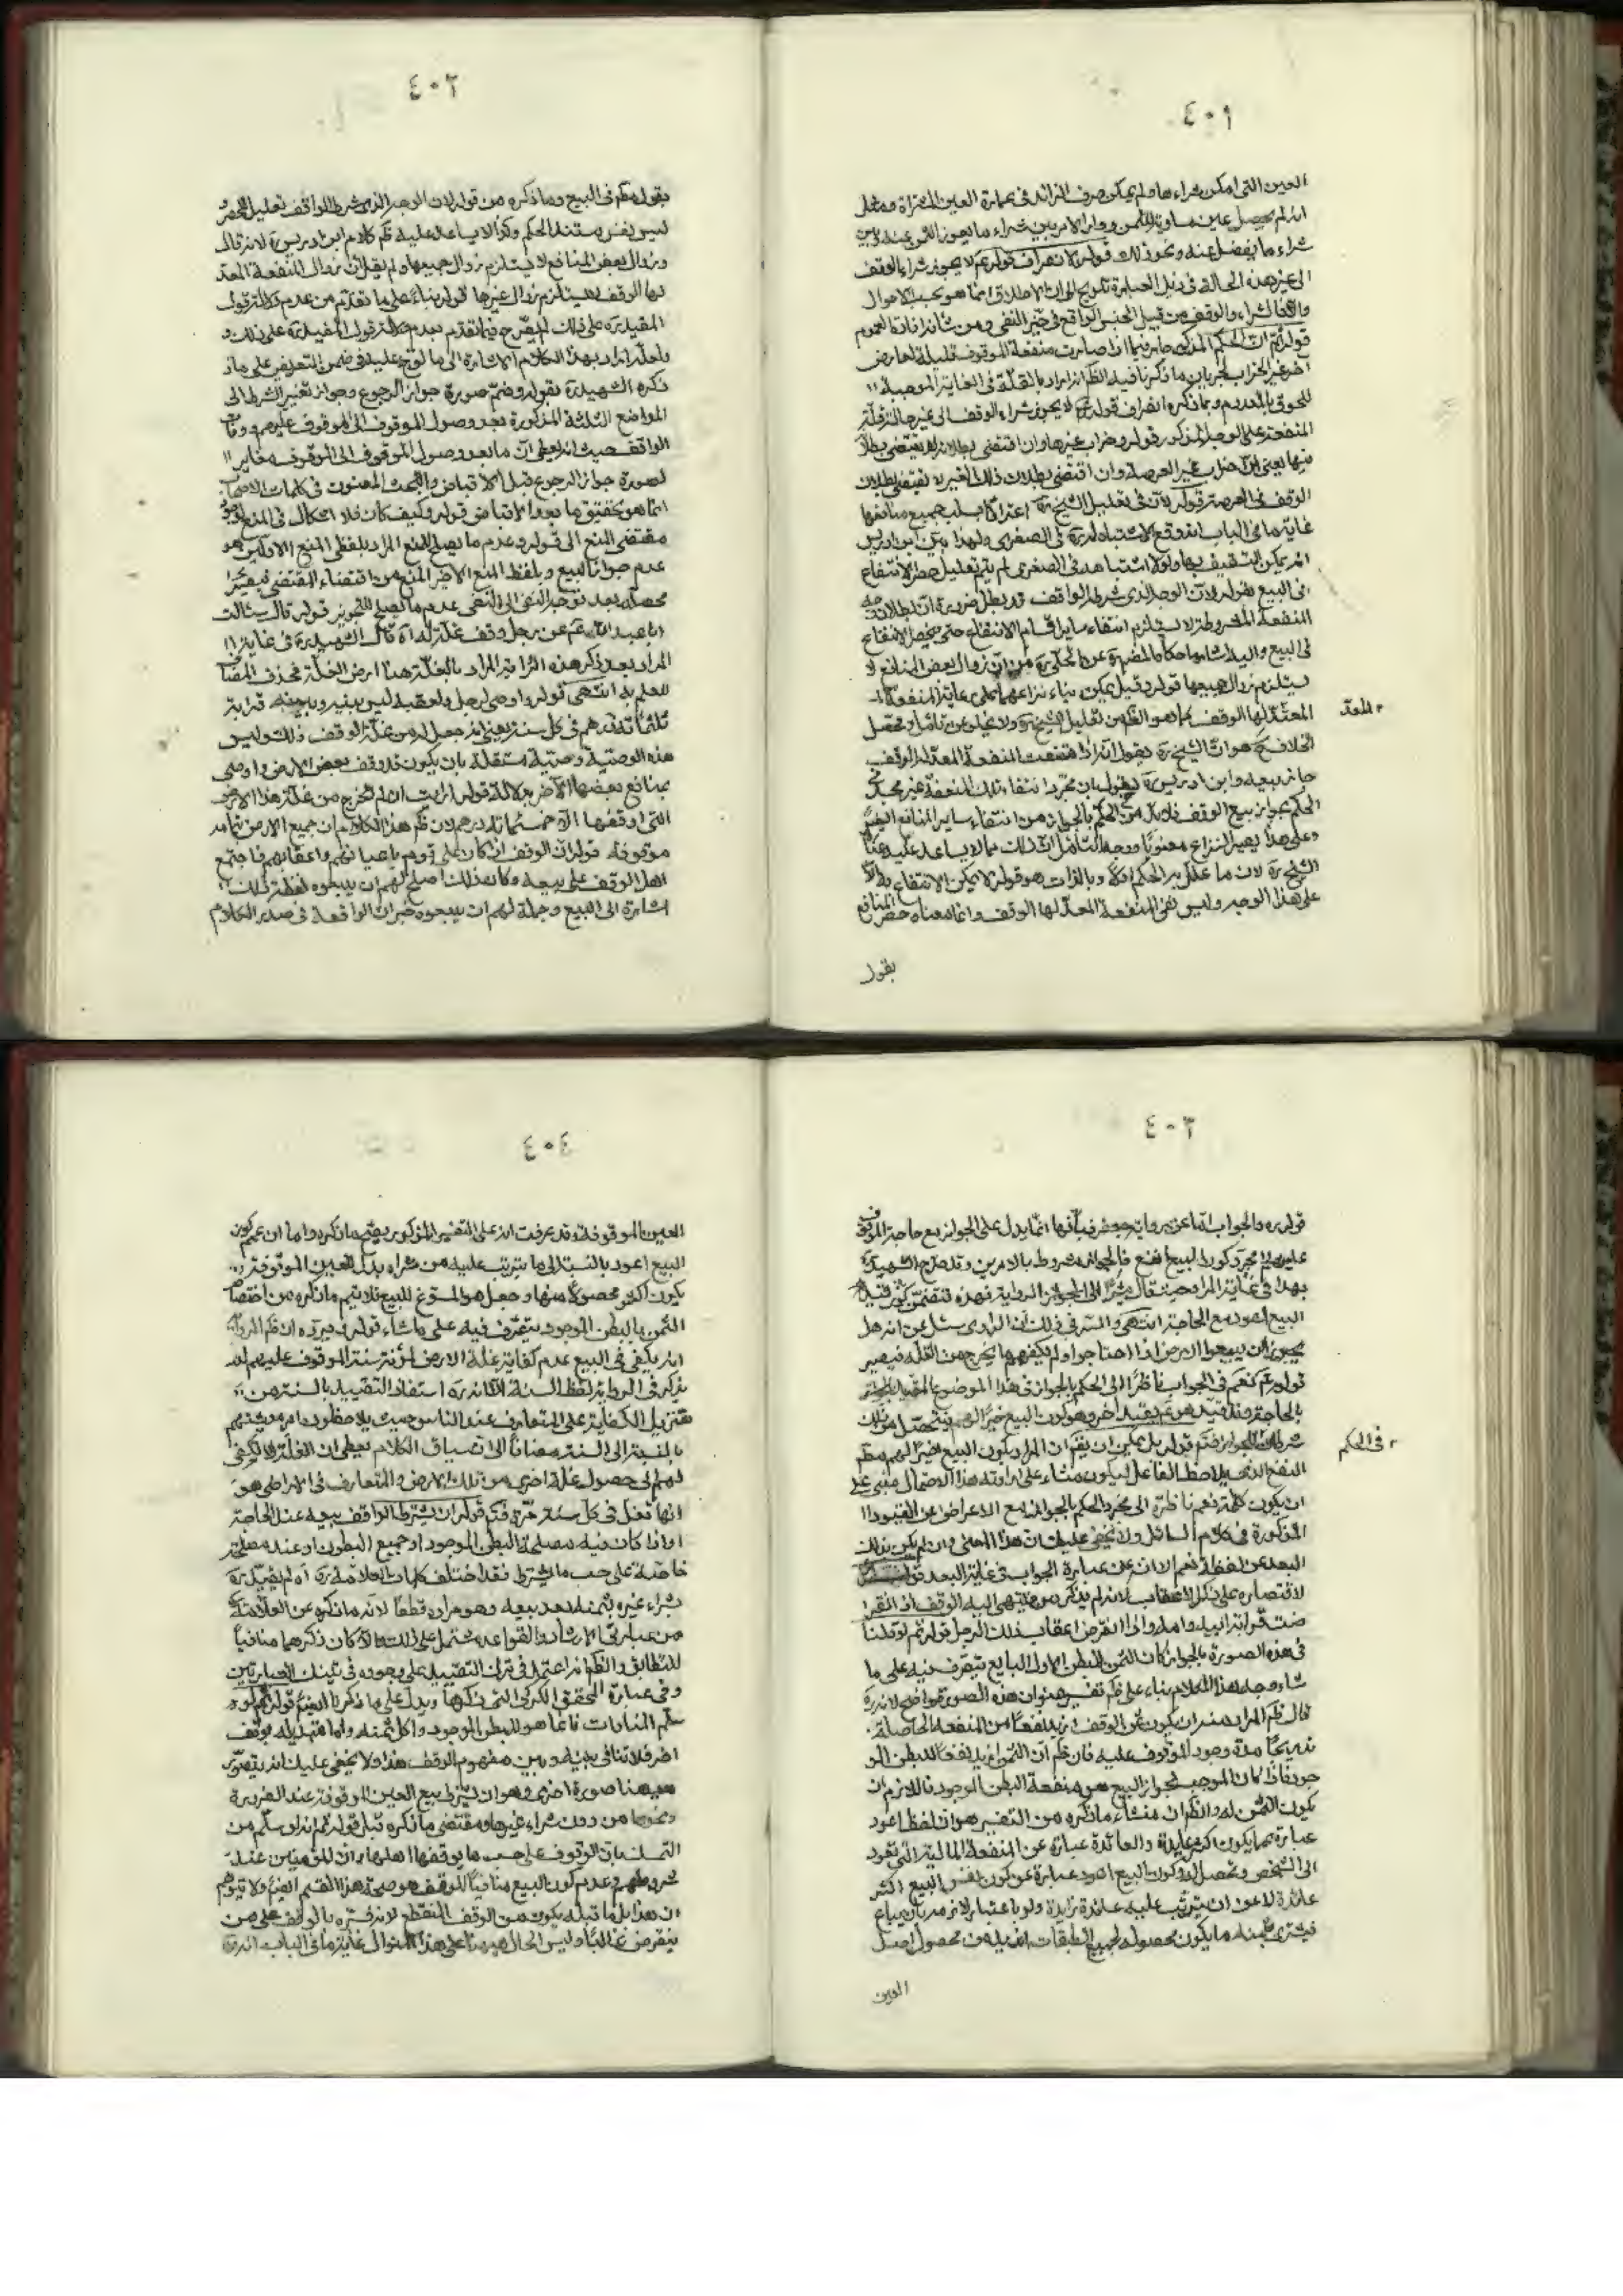 ٤٠١
العين التى امكن شراءها ولم يمكن صرف الزائد فى عمارة العين المشتراة ومثل
انه لم يحصل عين مساوية للثمن ودار الامر بين شراء ما يعوز الثمن عنه وبين
شراء ما يفضل عنه ونحو ذلك قوله لانصراف قوله عم لا يجوز شراء الوقف
الى غير هذه الحالة فى ذيل العبارة تلويح الى ان الاطلاق انما هو بحسب الاحوال
والا فالشراء والوقف من قبيل الجنس الواقع فى حيز النفى ومن شانه افادة العموم
قوله ثم ان الحكم المذكور جار فيما اذا صارت منفعة الموقوف قليلة لعارض
اخر غير الخراب لجريان ما ذكرنا فيه الظ انه اراد بالقلة فى الغاية الموجبة
للحوق بالمعدوم وبما ذكره انصراف قوله عم لا يجوز شراء الوقف الى غير حالة قلة
المنفعة على الوجه المذكور قوله وخراب غيرها وان اقتضى بطلانه لا يقتضى بطلا
نها يعنى ان خراب غير العرصة وان اقتضى بطلان ذلك الغير لا يقتضى بطلان
الوقف فى العرصة قوله لان فى تعليل الشيخ ره اعترافا بسلب جميع منافعها
غاية ما فى الباب انه وقع الاشتباه له ره فى الصغرى ولهذا بين ابن ادريس
انه يمكن التسقيف بها ولولا اشتباهه فى الصغرى لم يتم تعليل حصر الانتفاع
فى البيع بقوله لان الوجه الذى شرطه الواقف قد بطل ضرورة ان بطلان
المنفعة المشروطة لا يستلزم انتفاء ساير اقسام الانتفاع حتى ينحصر الانتفاع
فى البيع واليه اشار ما حكاه المص ره عن الحلى ره من ان زوال بعض المنافع لا
يستلزم زوال جميعها قوله وقيل يمكن بناء نزاعهما على رعاية المنفعة
المعد لها الوقف كما هو الظ من تعليل الشيخ ره ولا يخلو عن تامل ومحصل
الخلاف ح هو ان الشيخ ره يقول انه اذا انتفت المنفعة المعد لها الوقف
جاز بيعه وابن ادريس ره يقول بان مجرد انتفاء تلك المنفعة غير مجد فى
الحكم بجواز بيع الوقف فلابد من الحكم بالجواز من انتفاء ساير المنافع ايضا
وعلى هذا يصير النزاع معنويا ووجه التامل ان ذلك مما لا يساعد عليه عبارة
الشيخ ره لان ما علل به الحكم اولا وبالذات هو قوله لا يمكن الانتفاع بها الا
على هذا الوجه وليس نفى المنفعة المعد لها الوقف وانما معناه حصر المنافع
بقول
المعد
٤٠٢
بقول مطلق فى البيع وما ذكره من قوله لان الوجه الذى شرطه الواقف تعليل للحصر و
ليس نفس مستند الحكم وكذا لا يساعد عليه ظ كلام ابن ادريس ره لانه قال
وزوال بعض المنافع لا يستلزم زوال جميعها ولم يقل ان زوال المنفعة المعد
لها الوقف لا يستلزم زوال غيرها قوله بناء على ما تقدم من عدم دلالة قوله
المقيدة على ذلك لم يصرح فيما تقدم بعدم دلالة قوله المقيدة على ذلك و
لعله اراد بهذا الكلام الاشارة الى ما لوح عليه فى ضمن التعريض على ما
ذكره الشهيد ره بقوله وضم صورة جواز الرجوع وجواز تغيير الشرط الى
المواضع الثلثة المذكورة بعد وصول الموقوف الى الموقوف عليهم ووفاة
الواقف حيث انه يعطى ان ما بعد وصول الموقوف الى الموقوف عليه مغاير
لصورة جواز الرجوع قبل الاقباض والبحث المعنون فى كلمات الاصحاب
انما هو تحقيق ما بعد الاقباض قوله وكيف كان فلا اشكال فى المنع لوجود
مقتضى المنع الى قوله وعدم ما يصلح للمنع المراد بلفظى المنع الاولين هو
عدم جواز البيع وبلفظ المنع الاخير المنع من اقتضاء المقتضى فيصير
محصله بعد توجه النفى الى النفى عدم ما يصلح للتجويز قوله قال سئلت
ابا عبد الله عم عن رجل وقف غلة له اه قال الشهيد ره فى غاية
المراد بعد ذكر هذه الرواية المراد بالغلة هنا ارض الغلة فحذف المضاف
للعلم به انتهى قوله واوصى لرجل ولعقبه ليس بينه وبينه قرابة
ثلثمائة درهم فى كل سنة يعنى انه جعل له من غلة الوقف ذلك وليس
هذه الوصية وصية مستقلة بان يكون قد وقف بعض الارض واوصى
بمنافع بعضها الاخر بدلالة قوله ارايت ان لم تخرج من غلة هذا الارض
التى اوقفها الا خمسمائة درهم لان ظ هذا الكلام ان جميع الارض بتمامه
موقوفة قوله ان الوقف اذا كان على قوم باعيانهم واعقابهم فاجتمع
اهل الوقف على بيعه وكان ذلك اصلح لهم ان يبيعوه لفظة ذلك
اشارة الى البيع وجملة لهم ان يبيعوه خبر ان الواقعة فى صدر الكلام
٤٠٣
قوله ره والجواب اما عن رواية جعفر فبانها انما يدل على الجواز مع حاجة الموقوف
عليهم لا مجرد كون البيع انفع فالجواز مشروط بالامرين وقد صرح الشهيد ره
بهذا فى غاية المراد حيث قال مشيرا الى الجواز الرواية فهذه تتضمن كون
البيع اعود مع الحاجة انتهى والسر فى ذلك ان الراوى سئل عن انه هل
يجوز ان يبيعوا الارض اذا احتاجوا ولم يكفهم ما يخرج من الغلة فيصير
قوله عم نعم فى الجواب ناظرا الى الحكم بالجواز فى هذا الموضوع المقيد
بالحاجة وقد قيده عم بقيد اخر وهو كون البيع خيرا لهم فيتحصل من ذلك
شرطان للجواز فتم قوله بل يمكن ان يقال ان المراد بكون البيع خيرا لهم مطلق
النفع الذى يلاحظه الفاعل ليكون منشاء على ارادته هذا الاحتمال مبنى على
ان يكون كلمة نعم ناظرة الى مجرد الحكم بالجواز مع الاعراض عن القيود
المذكورة فى كلام السائل ولا يخفى عليك ان هذا المعنى وان لم يكن بذلك
البعد عن لفظة نعم الا انه عن عبارة الجواب فى غاية البعد قوله
لاقتصاره على ذكر الاعقاب لانه لم يذكر من ينتهى اليه الوقف اذا انقر
ضت قرابة ابيه وامه والى انقرض اعقاب ذلك الرجل قوله ثم لو قلنا
فى هذه الصورة بالجواز كان الثمن للبطن الاول البايع يتصرف فيه على ما
شاء وجه هذا الكلام بناء على ظ تفسير عنوان هذه الصورة واضح لانه ره
قال ظ المراد منه ان يكون ثمن الوقف ازيد نفعا من المنفعة الحاصلة
تدريجا مدة وجود الموقوف عليه فان ظ ان الثمن ازيد نفعا للبطن المو
جود فاذا كان الموجب لجواز البيع هو منفعة البطن الموجود فاللازم ان
يكون الثمن له والظ ان منشاء ما ذكره من التفسير هو ان لفظ اعود
عبارة عما يكون اكثر عائدة والعائدة عبارة عن المنفعة المالية التى تعود
الى الشخص وتحصل له وكون البيع اعود عبارة عن كون نفس البيع اكثر
عائدة لا عن ان يترتب عليه عائدة زايدة ولو باعتبار لازمه بان يباع
فيشترى بثمنه ما يكون محصوله لجميع الطبقات ازيد من محصول اصل
العين
فى الحكم
٤٠٤
العين الموقوفة وقد عرفت انه على التفسير المذكور يصح ما ذكره واما ان عم كون
البيع اعود بالنسبة الى ما يترتب عليه من شراء بدل العين الموقوفة
يكون اكثر محصولا منها وجعل هو المسوغ للبيع فلا يتم ما ذكره من اختصاص
الثمن بالبطن الموجود يتصرف فيه على ما شاء قوله فى رده ان ظ الرواية
انه يكفى فى البيع عدم كفاية غلة الارض لمؤنة سنة الموقوف عليهم لم
يذكر فى الرواية لفظ السنة الا انه ره استفاد التقييد بالسنة من
تنزيل الكفاية على المتعارف عند الناس حيث يلاحظون امر معيشتهم
بالنسبة الى السنة مضافا الى ان سياق الكلام يعطى ان الغلة لا تكفى
لهم الى حصول غلة اخرى من تلك الارض والمتعارف فى الاراضى هو
انها تغل فى كل سنة مرة فتم قوله ان يشترط الواقف بيعه عند الحاجة
او اذا كان فيه مصلحة البطن الموجود او جميع البطون او عند مصلحة
خاصة على حسب ما يشترط فقد اختلف كلمات العلامة ره اه لم يقيده ره
بشراء غيره بثمنه بعد بيعه وهو مراده قطعا لانه ما ذكره عن العلامة
من عبارتى الارشاد والقواعد مشتمل على ذلك والا كان ذكرهما منافيا
للتطابق والظ انه اعتمد فى ترك التقييد على وجوده فى تينك العبارتين
وفى عبارة المحقق الكركى التى ذكرها ويدل على ما ذكرنا ايضا قوله ثم لو
سلم المنافات فانما هو للبطن الموجود واكل ثمنه واما تبديله بوقف
اخر فلا تنافى بينه وبين مفهوم الوقف هذا ولا يخفى عليك انه يتصور
هيهنا صورة اخرى وهو ان يشترط بيع العين الموقوفة عند الضرورة
ونحوها من دون شراء غيرها ومقتضى ما ذكره قبل قوله ثم انه لو سلم من
التمسك بان الوقوف على حسب ما يوقفها اهلها وان المؤمنين عند
شروطهم وعدم كون البيع منافيا للوقف هو صحة هذا القسم ايضا ولا يتوهم
ان هذا بل ما قبله يكون من الوقف المنقطع لانه فسره بالوقف على من
ينقرض غالبا وليس الحال هيهنا على هذا المنوال غاية ما فى الباب انه